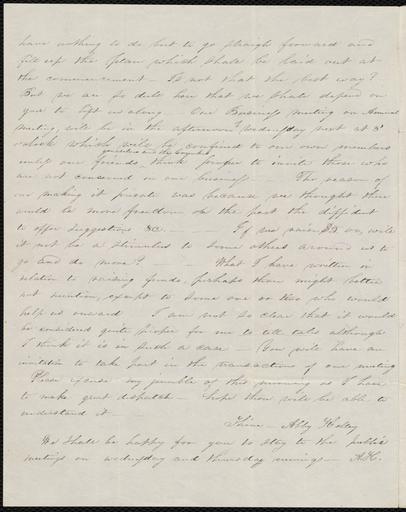 have nothing to do but to go straight forward and
fill up the plan which shall be laid out at
the commencement – Is not that the best way?
But we are so debt here that we shall depend on
you to lift us along. Our Business meeting or Annual
meeting will be in the afternoon Wednesday next at 3
o'clock which will be confined to our own members
unless our friends think proper to invite those who
are not concerned in our business. The reason of
our making it private was because we thought there
would be more freedom on the part the diffident
to offer suggestions &c. – If we raise $ on, will
it not be a stimulus to some others around us to
go and do more? – What I have written in
relation to raising funds, perhaps thou might better
not mention, except to some one or two who would
help us onward I am not so clear that it would
be considered quite proper for me to tell tales although
I think it is in such a case You will have an
invitation to take part in the transactions of our meeting
Please excuse my scramble of this morning as I have
to make great dispatch – hope thou will be able to
understand it –
Thine – Abby
We shall be happy for you to stay to the public
meetings on wednesday and thursday evenings – A.K.